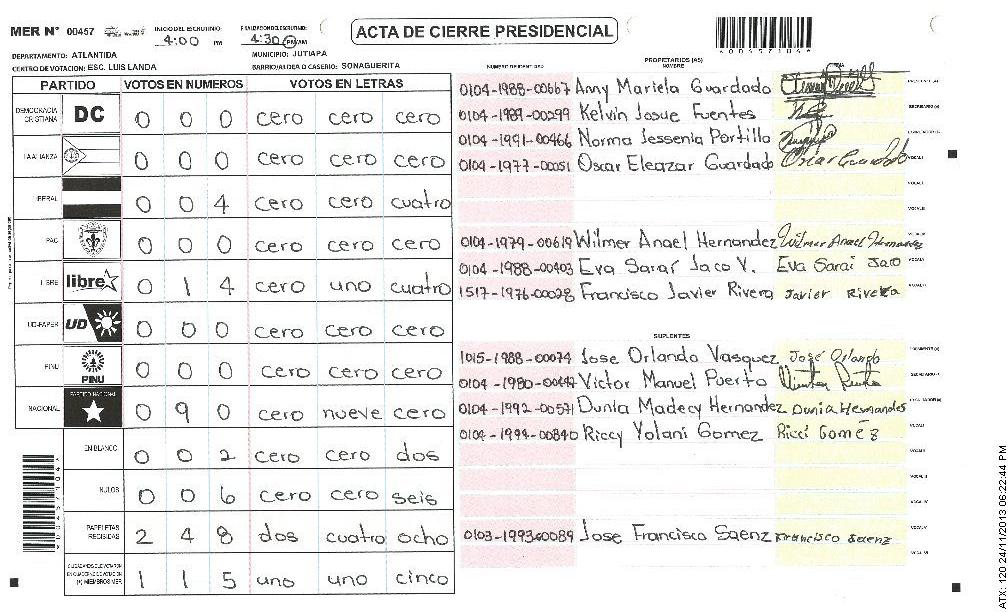 MER N° 00457
INICIO DEL ESCRUTINIO:
4:00 PM
FINALIZACION DEL ESCRUTINIO:
4:30 PM/AM
ACTA DE CIERRE PRESIDENCIAL
DEPARTAMENTO: ATLANTIDA
MUNICIPIO: JUTIAPA
CENTRO DE VOTACION: ESC. LUIS LANDA
BARRIO/ALDEA O CASERIO: SONAGUERITA
PARTIDO VOTOS EN NUMEROS VOTOS EN LETRAS
DEMOCRACIA CRISTIANA DC 0 0 0 cero cero cero
LA ALIANZA 0 0 0 cero cero cero
LIBERAL 0 0 4 cero cero cuatro
PAC 0 0 0 cero cero cero
LIBRE libre 0 1 4 cero uno cuatro
UD-FAPER UD 0 0 0 cero cero cero
PINU PINU 0 0 0 cero cero cero
NACIONAL PARTIDO NACIONAL 0 9 0 cero nueve cero
EN BLANCO 0 0 2 cero cero dos
NULOS 0 0 6 cero cero seis
PAPELETAS RECIBIDAS 2 4 8 dos cuatro ocho
CIUDADANOS QUE VOTARON EN CUADERNO DE VOTACION (+) MIEMBROS MER 1 1 5 uno uno cinco
NUMERO DE IDENTIDAD
PROPIETARIOS (AS)
NOMBRE
0104-1988-00667 Anny Mariela Guardado
0104-1989-00299 Kelvin Josue Fuentes
0104-1991-00466 Norma Jessenia Portillo
0104-1977-00051 Oscar Eleazar Guardado Oscar Guardado
0104-1979-00619 Wilmer Anael Hernandez Wilmer Anael Hernandez
0104-1988-00403 Eva Saraí Jaco V. Eva Sarai Jaco
1517-1976-00028 Francisco Javier Rivera Javier Rivera
SUPLENTES
1015-1988-00074 Jose Orlando Vasquez José Orlando
0104-1980-00447 Victor Manuel Puerto
0104-1992-00571 Dunia Madecy Hernandez Dunia Hernandes
0104-1994-00840 Riccy Yolani Gomez Ricci Gomés
0103-1993-00089 Jose Francisco Saenz Francisco Saenz
ATX: 120 24/11/2013 06:22:44 PM